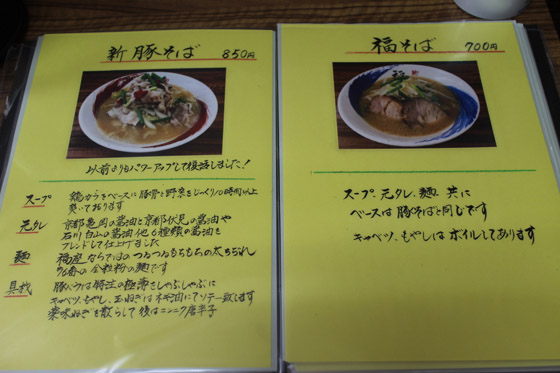 新 豚そば 850円
以前よりもパワーアップして復活しました!
スープ 鶏がらをベースに豚骨と野菜をじっくり10時間以上
炊いております
元タレ 京都亀岡の醤油と京都伏見の醤油や
石川白山の醤油他6種類の醤油を
ブレンドして仕上げました
麺 福座ならではのつるつるもちもちの太ちぢれ
96番の全粒粉の麺です
具材 豚バラは特注の極薄をしゃぶしゃぶに
キャベツ、もやし、玉ねぎは
にてソテー致します
薬味ねぎを散らして後はニンニク唐辛子
福そば 700円
スープ、元タレ、麺、共に
ベースは豚そばと同じです
キャベツ、もやしはボイルしてあります